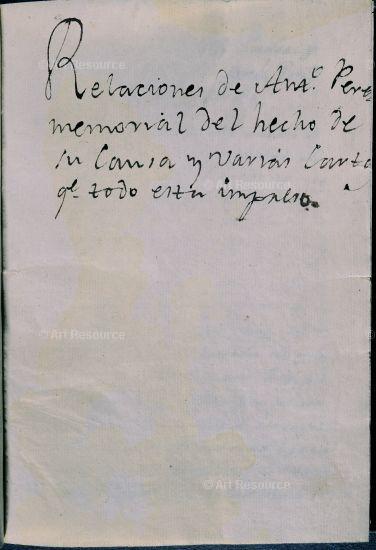 Relaciones de Anto. Pere
memorial del hecho de
su Causa y varias Carta
qe. todo esta impreso.
© Art Resource
© Art Resource
© Art Resource
© Art Resource
© Art Resource